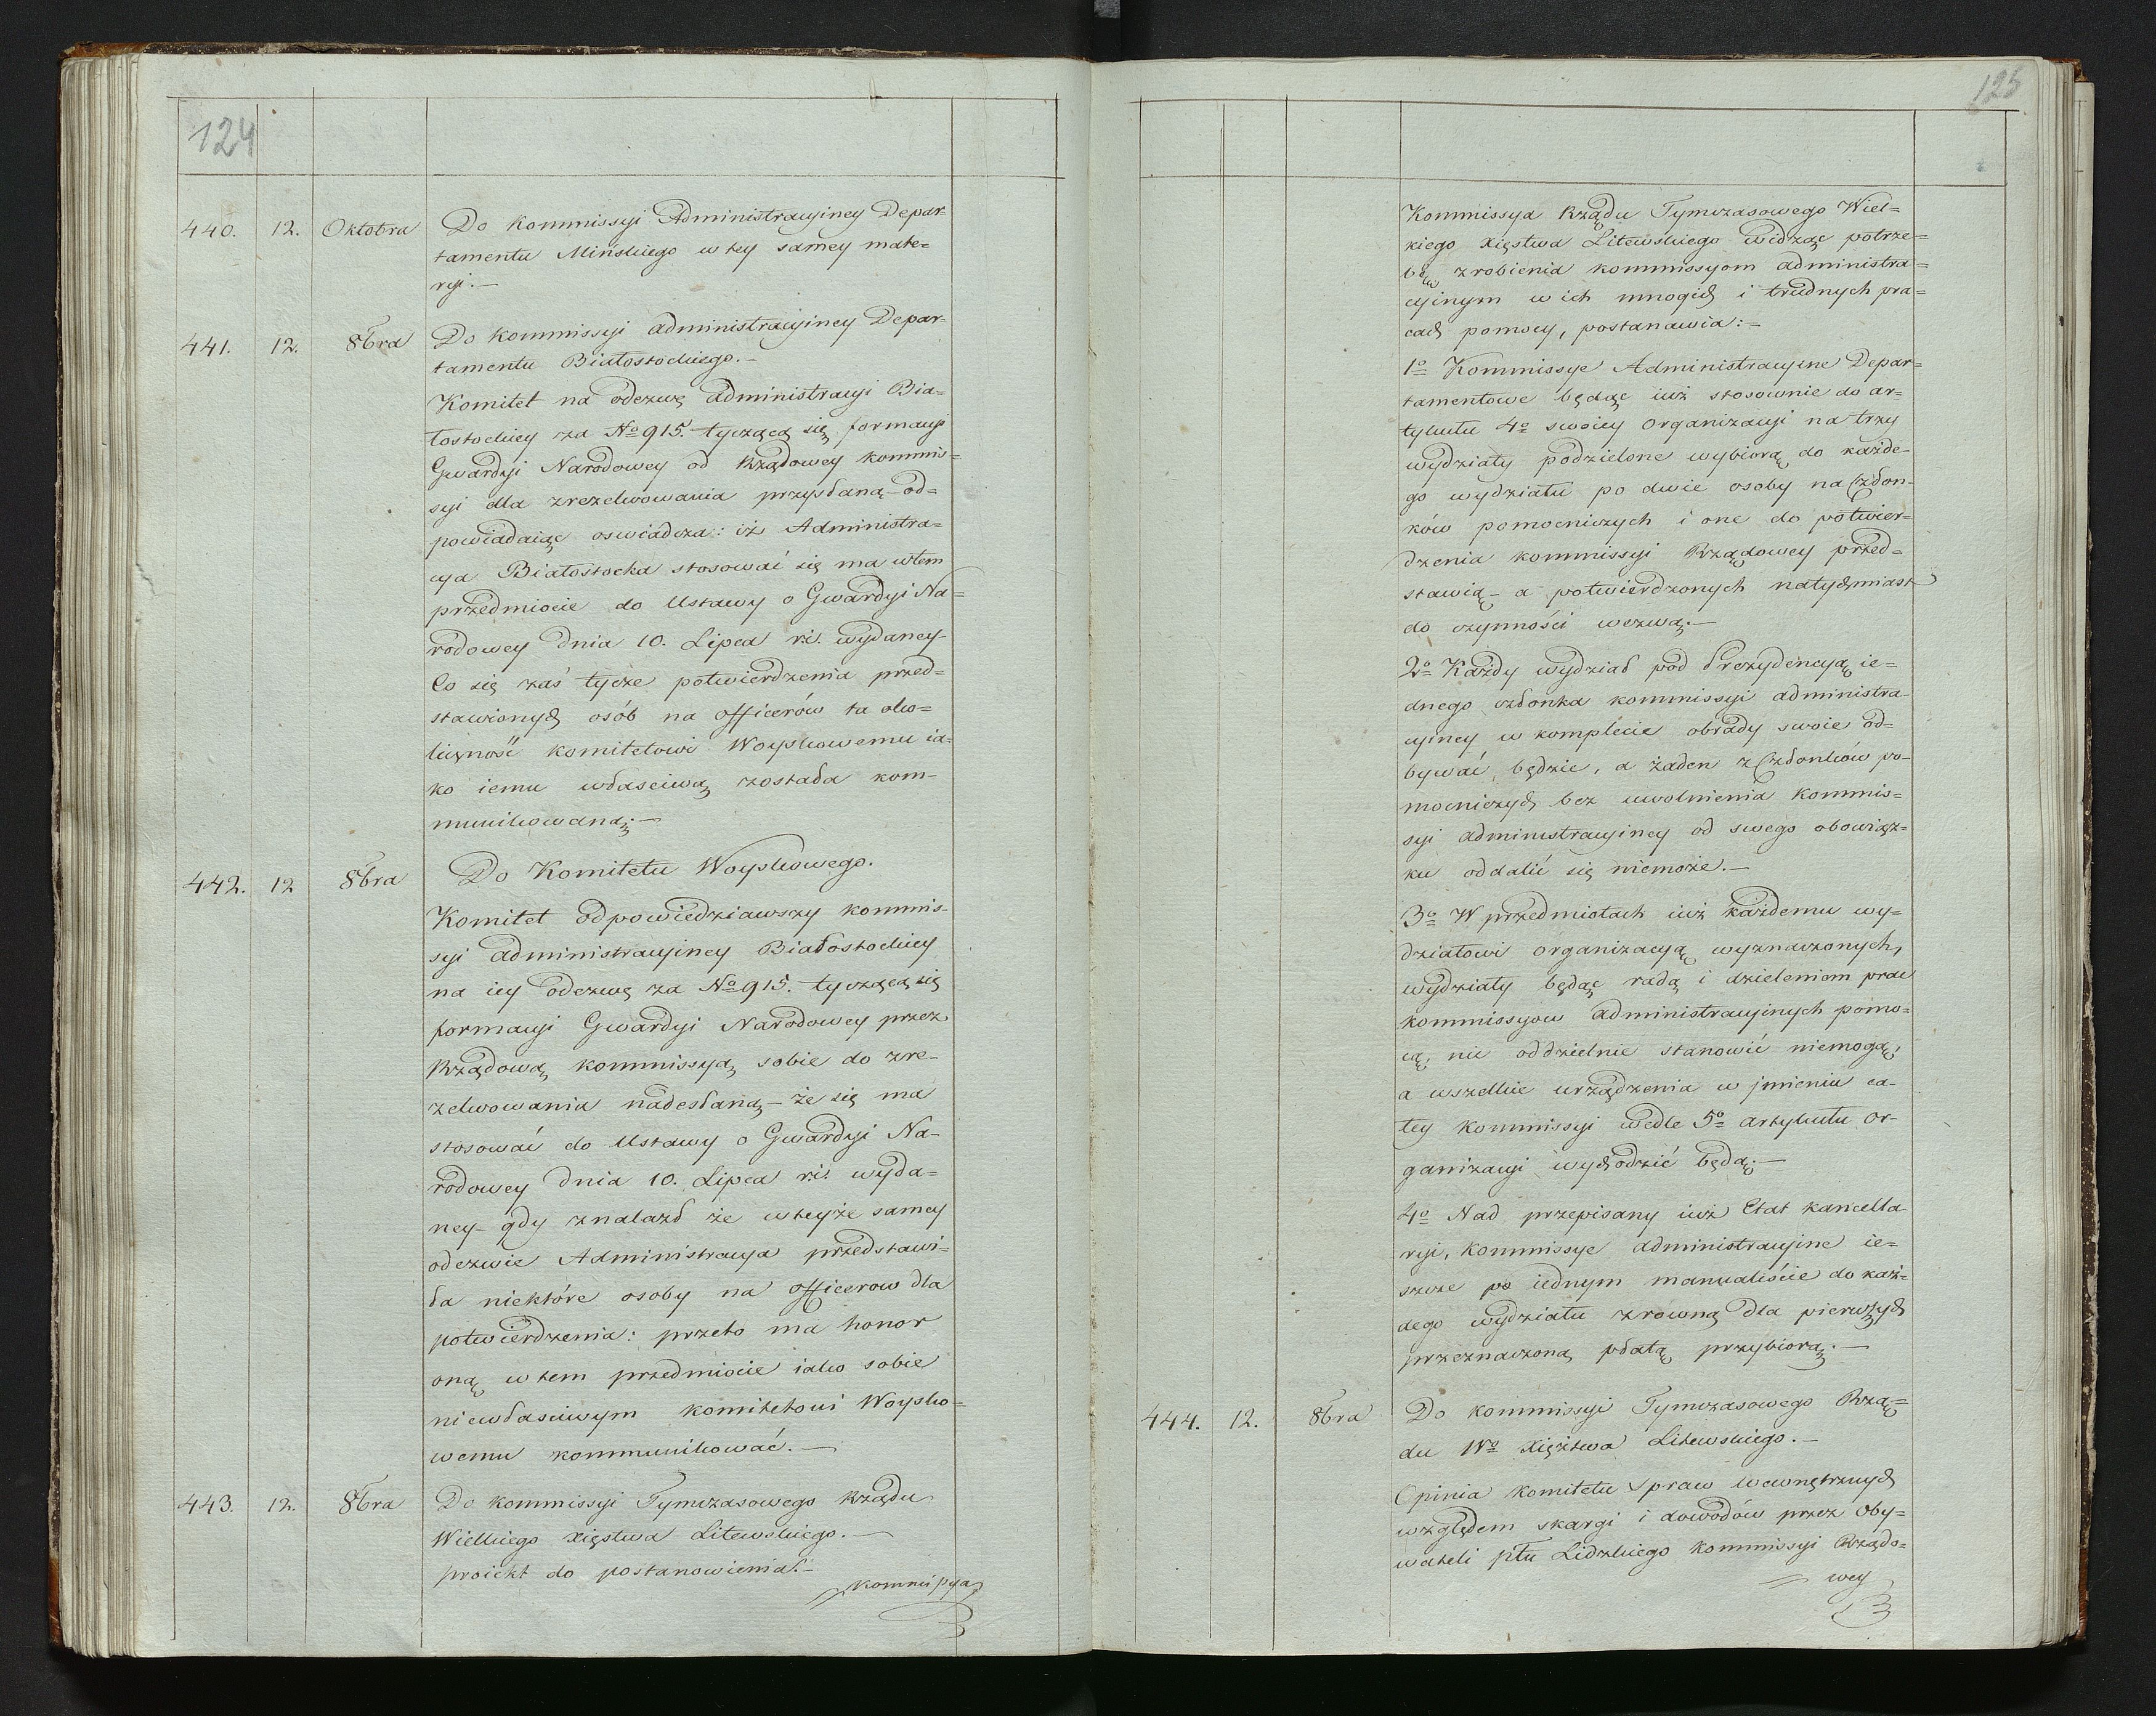 124
440. 12. Oktobra Do Kommissyi Administracyiney Depar=
tamentu Mińskiego w tey samey mate=
ryi.—
441. 12. 8bra Do Kommissyi administracyiney Depar=
tamentu Białostockiego.—
Komitet na odezwę administracyi Bia=
łostockiey za No 915. tyczącą się formacyi
Gwardyi Narodowey od Rządowey kommis=
syi dla zrezelwowania przysłaną — od=
powiadaiąc oswiadcza: iż Administra=
cya Białostocka stosować się ma wtem
przedmiocie do Ustawy o Gwardyi Na=
rodowey dnia 10. Lipca r.i. wydaney —
Co się zaś tycze potwierdzenia przed=
stawionych osób na officerów ta oko=
liczność komitetowi Woyskowemu ia=
ko iemu właściwą została kom=
munikowaną.—
442. 12 8bra Do Komitetu Woyskowego.
Komitet odpowiedziawszy kommis=
syi administracyiney Białostockiey
na iey odezwę za No 915. tyczącą się
formacyi Gwardyi Narodowey przez
Rządową kommissyą sobie do zre=
zelwowania nadesłaną — że się ma
stosować do Ustawy o Gwardyi Na=
rodowey dnia 10. Lipca r.i. wyda=
ney — gdy znalazł że wteyże samey
odezwie Administracya przedstawi=
ła niektóre osoby na officerow dla
potwierdzenia: przeto ma honor
oną w tem przedmiocie iako sobie
niewłasciwym komitetowi Woysko=
wemu kommunikować.—
443. 12. 8bra Do kommissyi Tymczasowego Rządu
Wielkiego Xięstwa Litewskiego.—
proiekt do postanowienia.—
Kommissya
125
Kommissya Rządu Tymczasowego Wiel=
kiego Xięstwa Litewskiego widząc potrze=
bę zrobienia kommissyom administra=
cyinym w ich mnogich i trudnych pra=
cach pomocy, postanawia:=
1o Kommissye Administracyine Depar=
tamentowe będąc iuż stosownie do ar=
tykułu 4o swoiey organizacyi na trzy
wydziały podzielone wybiorą do każde=
go wydziału po dwie osoby na Człon=
ków pomocniczych i one do potwier=
dzenia kommissyi Rządowey przed=
stawią — a potwierdzonych natychmiast
do czynności wezwą.—
2o Każdy wydział pod Prezydencyą ie=
dnego członka kommissyi administra=
cyiney w komplecie obrady swoie od=
bywać będzie, a żaden z Członków po=
mocniczych bez uwolnienia Kommis=
syi administracyiney od swego obowiąz=
ku oddalić się niemoże.—
3o W przedmiotach iuż każdemu wy=
działowi organizacyą wyznaczonych,
wydziały będąc radą i dzieleniem prac
kommissyow administracyinych pomo=
cą, nic oddzielnie stanowić niemogą,
a wszelkie urządzenia w jmieniu ca=
łey kommissyi wedle 5o artykułu or=
ganizacyi wychodzić będą.—
4o Nad przepisany iuż Etat kancella=
ryi, Kommissye administracyine ie=
szcze po iednym manualiście do każ=
dego wydziału zrowną dla pierwszych
przeznaczoną płatą przybiorą.—
444. 12. 8bra Do kommissyi Tymczasowego Rzą=
du Wo Xięstwa Litewskiego.—
Opinia Komitetu Spraw wewnętrznych
względem skargi i dowodów przez Oby=
wateli pttu Lidzkiego Kommissyi Rządo=
wey